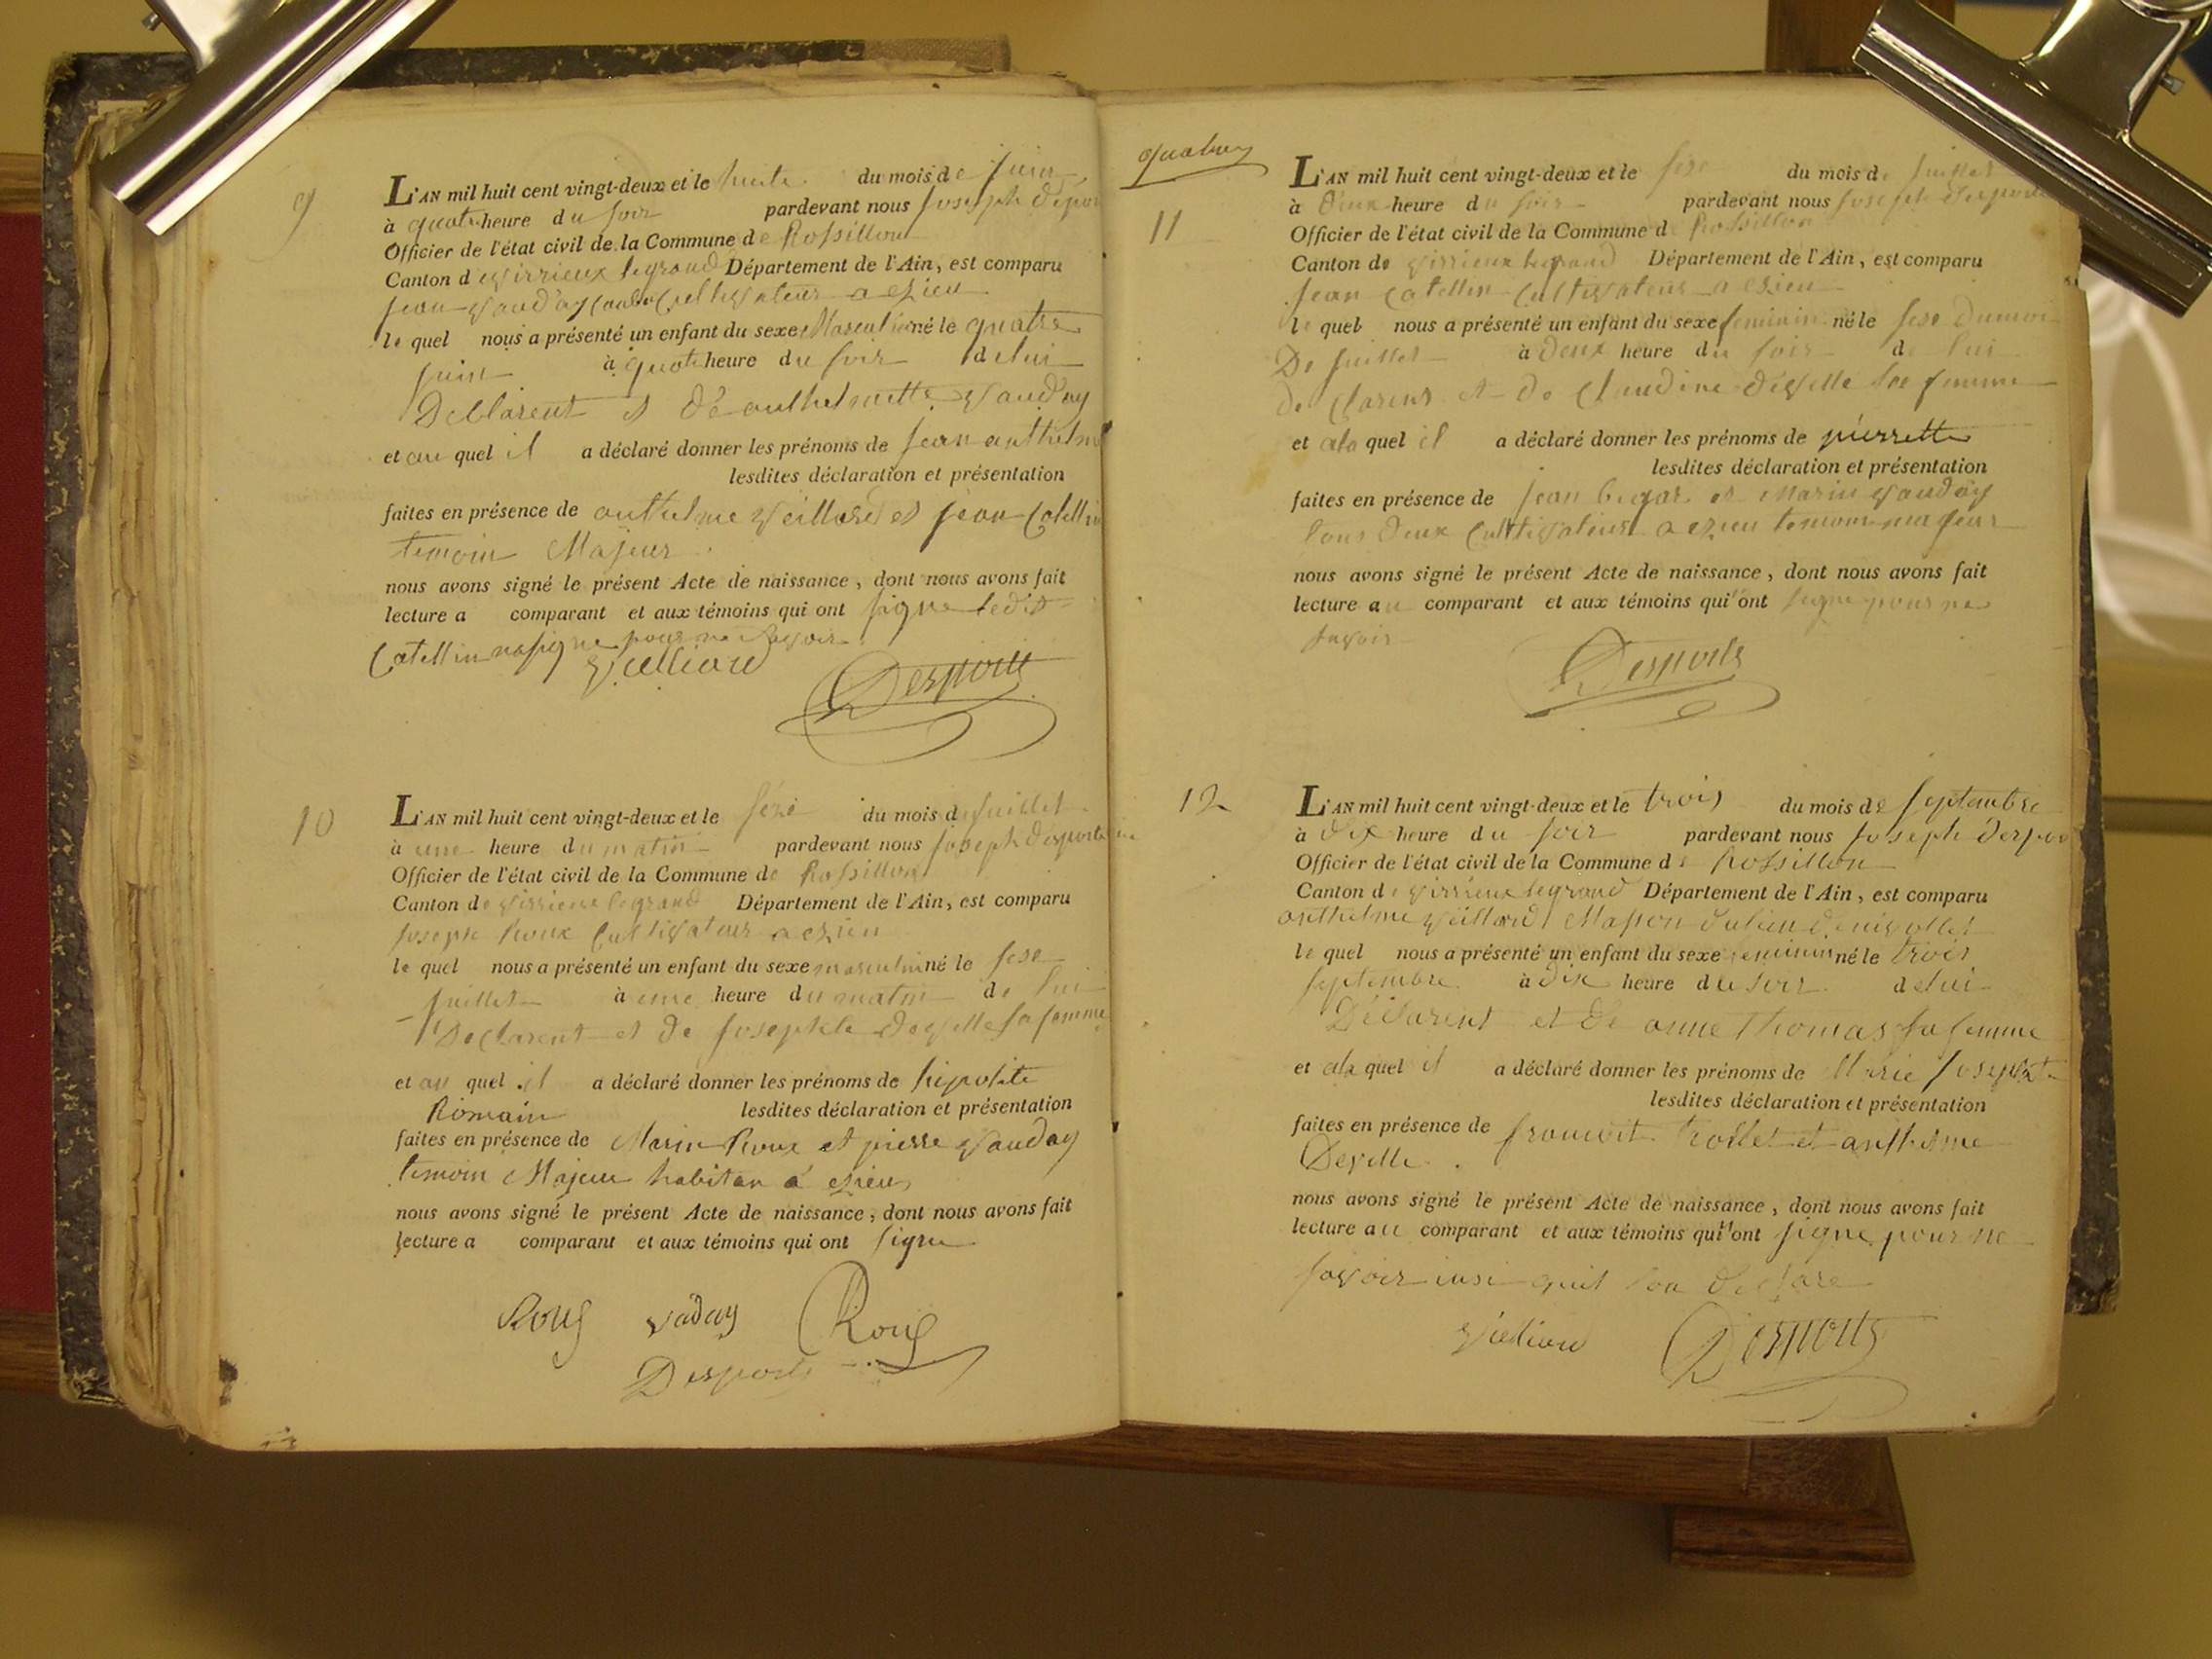 9
L'AN mil huit cent vingt-deux et le huite du mois de juin
à quatre heure du soir pardevant nous joseph despor
Officier de l'état civil de la Commune de Rossillon
Canton de virrieux legrand Département de l'Ain, est comparu
jean vauday Cultivateur a ezieu
le quel nous a présenté un enfant du sexe Masculin né le quatre
juin à quatre heure du soir de lui
Déclarent et dé anthelmette vauday
et au quel il a déclaré donner les prénoms de jean anthelme
lesdites déclaration et présentation
faites en présence de anthelme veillard et jean Catellin
temoin Majeur
nous avons signé le présent Acte de naissance, dont nous avons fait
lecture a comparant et aux témoins qui ont signe ledit
Catellin na signe pour ne savoir
Desports
10
L'AN mil huit cent vingt-deux et le seze du mois de juillet
à une heure du matin pardevant nous joseph desports
Officier de l'état civil de la Commune de Rossillon
Canton de virrieux legrand Département de l'Ain, est comparu
joseph Roux Cultivateur a ezieu
le quel nous a présenté un enfant du sexe masculin né le seze
juillet à une heure du matin de lui
Declarent et de josephte deville sa femme
et au quel il a déclaré donner les prénoms de hipolite
Romain lesdites déclaration et présentation
faites en présence de Marin Roux et pierre vauday
temoin Majeur habitan a ezieu
nous avons signé le présent Acte de naissance, dont nous avons fait
lecture a comparant et aux témoins qui ont signe
Roux vaday Roux
Desports
11
L'AN mil huit cent vingt-deux et le seze du mois de juillet
à deux heure du soir pardevant nous joseph desports
Officier de l'état civil de la Commune de Rossillon
Canton de virrieux legrand Département de l'Ain, est comparu
jean Catellin Cultivateur a ezieu
le quel nous a présenté un enfant du sexe feminin né le seze du moi
De juillet à deux heure du soir de lui
de Clarent et de Claudine déville sa femme
et ala quel il a déclaré donner les prénoms de pierrette
lesdites déclaration et présentation
faites en présence de jean et Marin vauday
tous deux Cultivateur a ezieu temoin majeur
nous avons signé le présent Acte de naissance, dont nous avons fait
lecture au comparant et aux témoins qui n'ont signe pour ne
savoir
Desports
12
L'AN mil huit cent vingt-deux et le trois du mois de septembre
à dix heure du soir pardevant nous joseph despor
Officier de l'état civil de la Commune de Rossillon
Canton de virrieux legrand Département de l'Ain, est comparu
anthelme veillard Masson
le quel nous a présenté un enfant du sexe feminin né le trois
septembre à dix heure du soir de lui
Déclarent et de anne thomas sa femme
et ala quel il a déclaré donner les prénoms de Marie josephte
lesdites déclaration et présentation
faites en présence de et anthelme
Deville
nous avons signé le présent Acte de naissance, dont nous avons fait
lecture au comparant et aux témoins qui n'ont signe pour ne
savoir insi quil lon declare
Desports